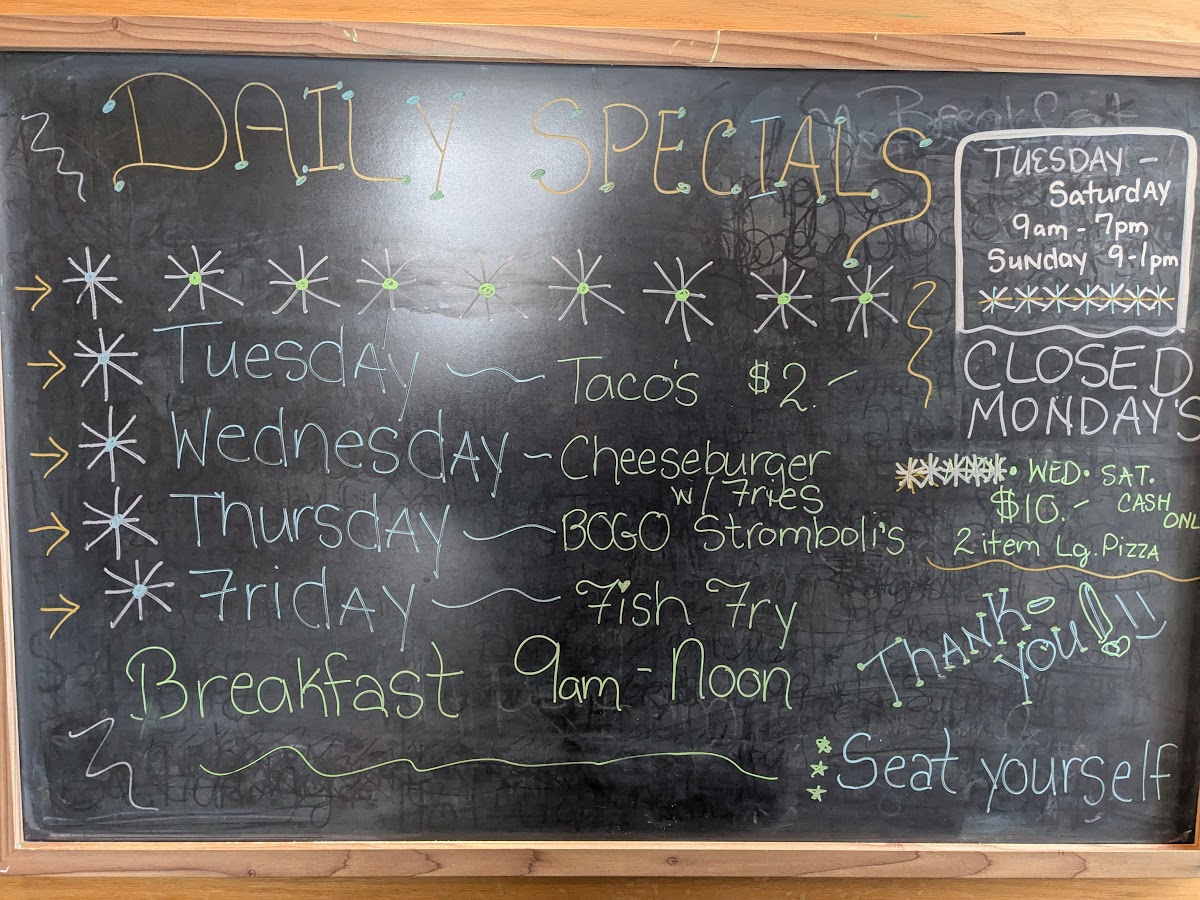 DAILY SPECIALS
Tuesday ~ Taco's $2.-
Wednesday - Cheeseburger
w/ Fries
Thursday ~ BOGO Stromboli's
Friday ~ Fish Fry
Breakfast 9am - Noon
TUESDAY -
Saturday
9am - 7pm
Sunday 9-1pm
CLOSED
MONDAY'S
• WED • SAT.
$10.- CASH
ONL
2 item Lg. Pizza
THANK-
YOU!!!
Seat yourself